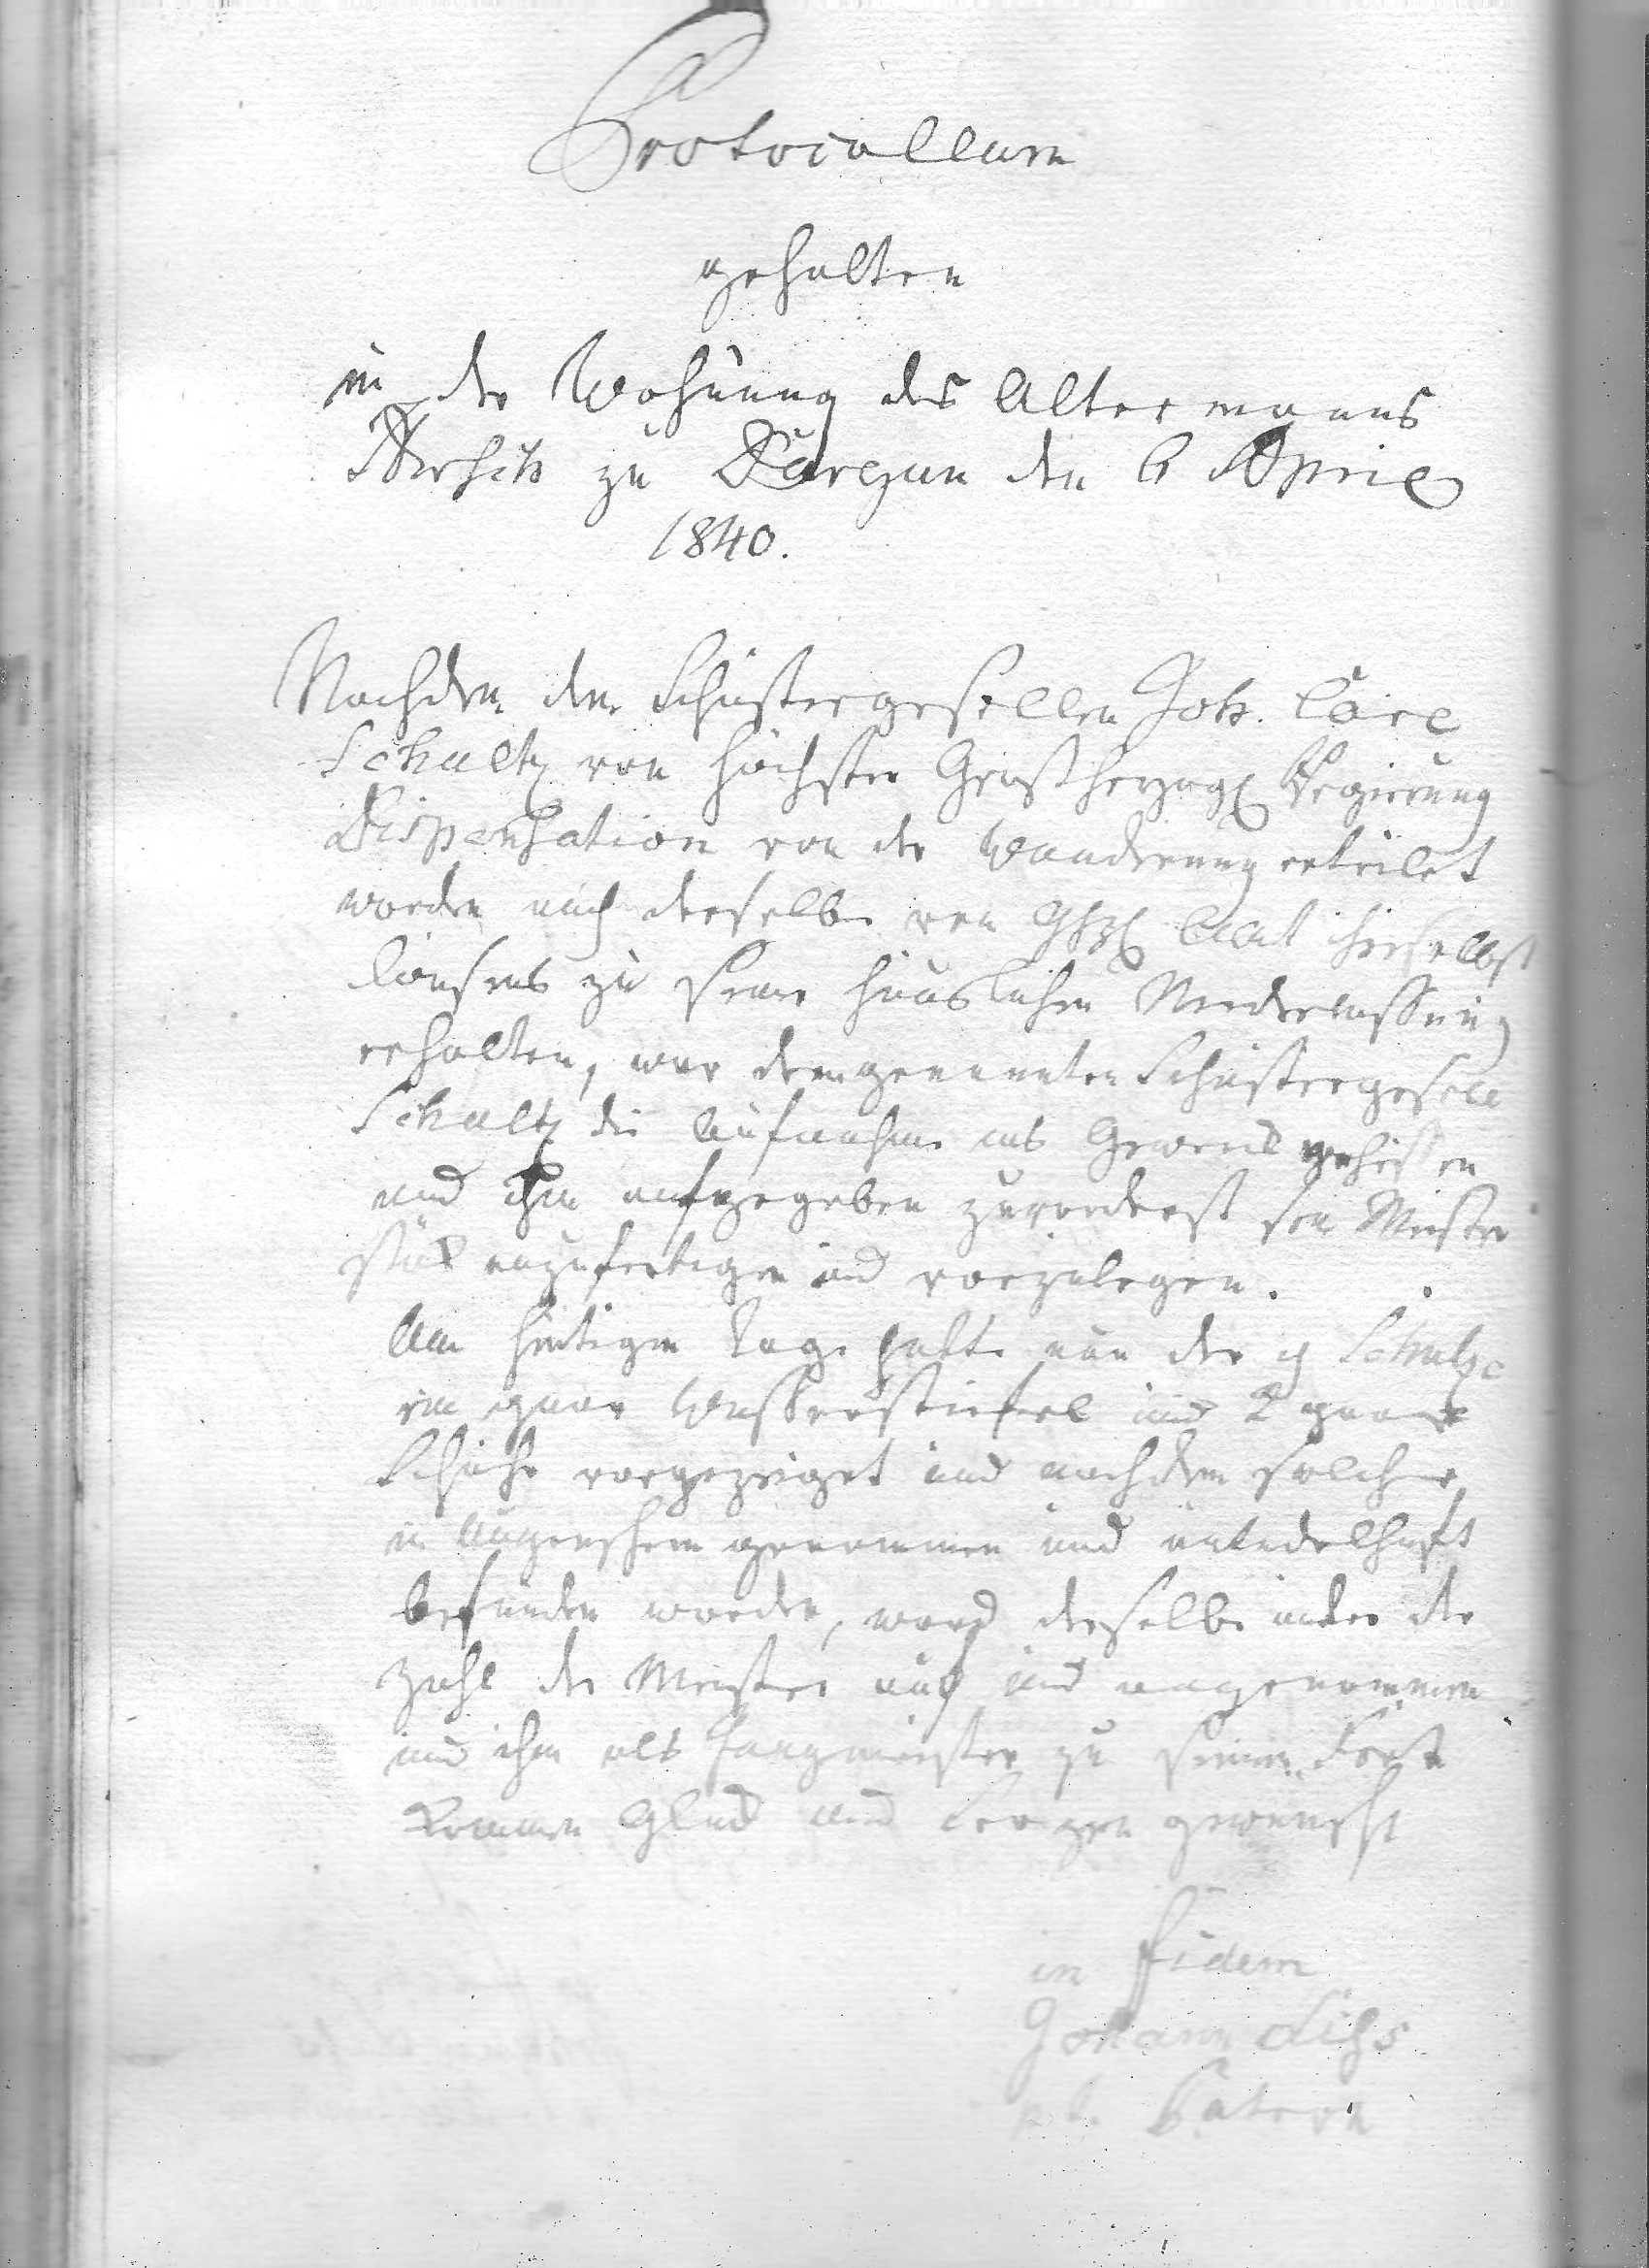 Protocollum
gehalten
in der Wohnung des Altermanns
zu Dargun den 6 April
1840.
Nachdem dem Schustergesellen Joh. Carl
Schultz von höchster Großherzogl Regierung
Dispensation von der Wanderung erteilet
worden auch derselbe von Ghzl Amt hieselbst
Consens zu seiner häuslichen Niederlassung
erhalten, war dem genannten Schustergesell
Schultz die Aufnahme ins Gewerk verheißen
und ihm aufgegeben zuvorderst sein Meister
stük anzufertigen und vorzulegen.
Am heutigen Tage hatte nun der Schultze
ein paar Wasserstiefel und 2 paar
Schuhe vorgezeiget und nachdem solche
in Augenschein genommen und untadelhaft
befunden worden, ward derselbe unter die
Zahl der Meister auf und angenommen
und ihm als Jungmeister zu seinem Fort
kommen Glück und Seegen gewünscht
in fidem
Johann
Patron